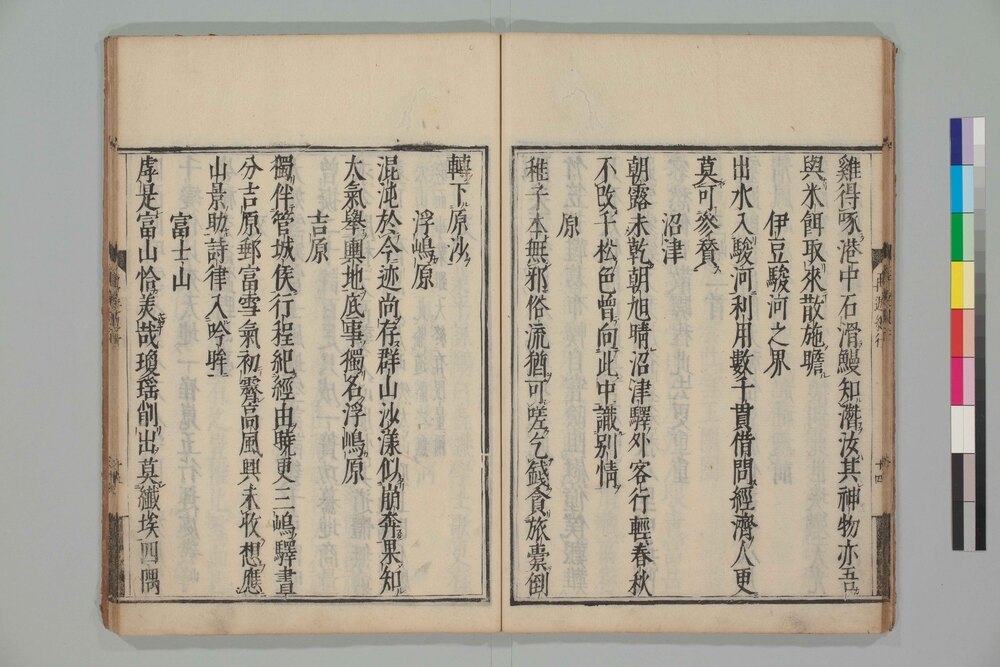 雞得啄港中石滑鰻知潛汝其神物亦吾
與米餌取來散施贍
伊豆駿河之界
出水入駿河利用數千貫借問經濟人更
莫可參賛
沼津
朝露未乾朝旭晴沼津驛外客行輕春秋
不改千松色曾向此中識别情
原
稚子本無邪俗流猶可嗟乞錢貪旅橐倒
轉下原沙
浮嶋原
混沌於今迹尚存群山沙漾似崩奔果知
大氣舉輿地底事獨名浮嶋原
吉原
獨伴管城侯行程紀經由曉更三嶋驛晝
分吉原郵富雪氣初霽高風興未收想應
山景助詩律入吟眸
富士山
虖是富山恰美哉瓊瑶削出莫纖埃四隅